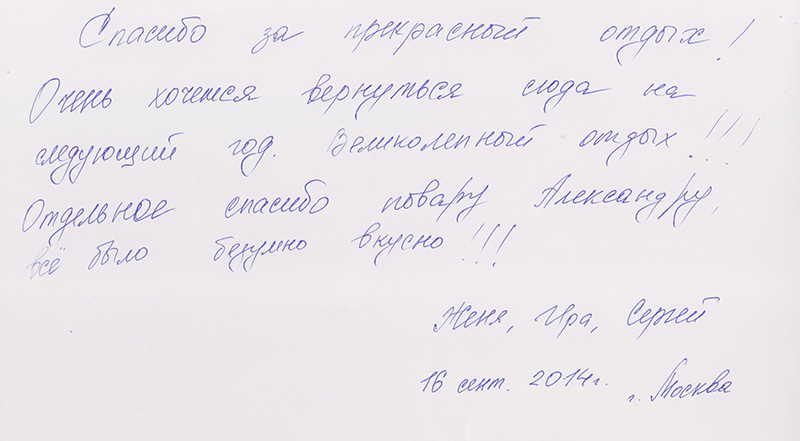 Спасибо за прекрасный отдых!
Очень хочется вернуться сюда на
следующий год. Великолепный отдых!!!
Отдельное спасибо повару Александру,
всё было безумно вкусно!!!
Женя, Ира, Сергей
16 сент. 2014г. г. Москва